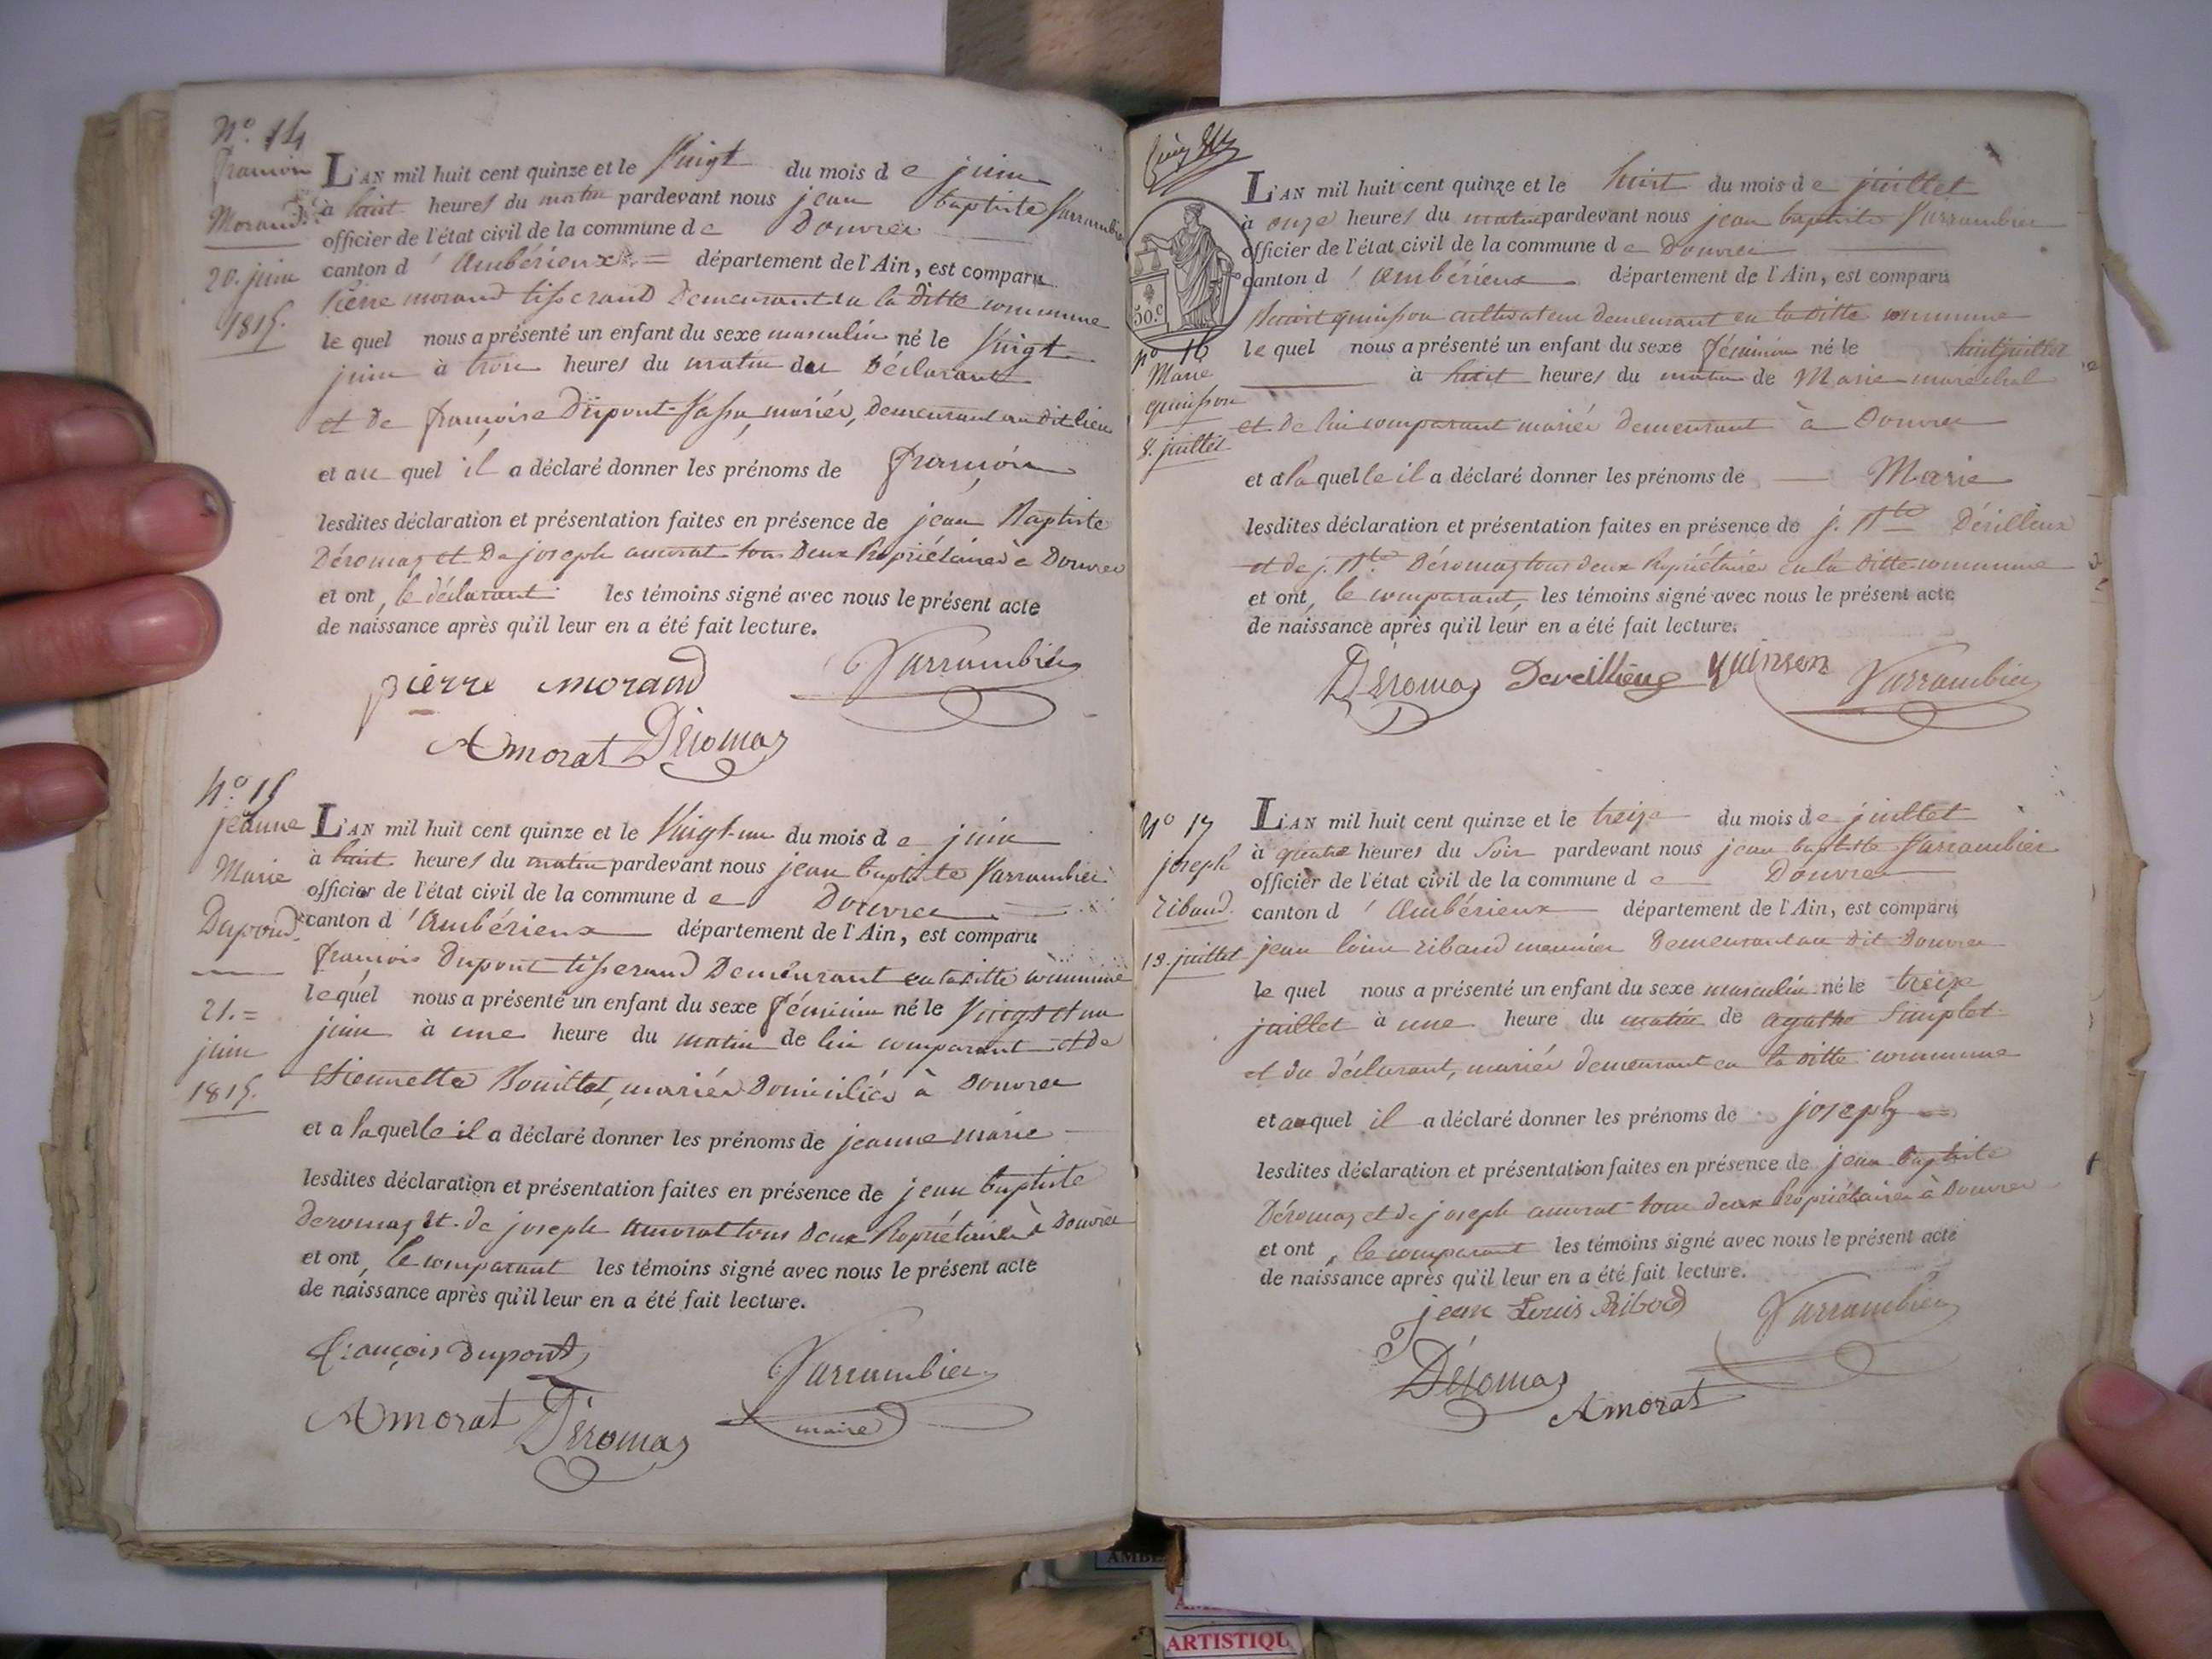 N.º 14
françois
Morand
20. juin
1815.
L'AN mil huit cent quinze et le Vingt du mois de juin
à huit heures du matin pardevant nous jean baptiste Varrambier
officier de l'état civil de la commune de Douvres
canton d'Ambérieux département de l'Ain, est comparu
Pierre morand tisserand Demeurant en la ditte commune
lequel nous a présenté un enfant du sexe masculin né le Vingt
juin à trois heures du matin du Déclarant
et de françoise Dupont-, mariés, Demeurant au dit lieu
et au quel il a déclaré donner les prénoms de françois
lesdites déclaration et présentation faites en présence de jean Baptiste
Déromas et De joseph amorat tous Deux Propriétaires à Douvres
et ont, le déclarant les témoins signé avec nous le présent acte
de naissance après qu'il leur en a été fait lecture.
pierre morand Varrambier
Amorat Déromas
N.º 15
jeanne
Marie
Dupond
21.=
juin
1815.
L'AN mil huit cent quinze et le Vingt-un du mois de juin
à huit heures du matin pardevant nous jean baptiste Varrambier
officier de l'état civil de la commune de Douvres
canton d'Ambérieux département de l'Ain, est comparu
françois Dupont tisserand Demeurant en la ditte commune
lequel nous a présenté un enfant du sexe féminin né le Vingt et un
juin à une heure du matin de lui comparant et de
Etiennette Bouillet, mariés Domiciliés à Douvres
et a laquelle il a déclaré donner les prénoms de jeanne marie
lesdites déclaration et présentation faites en présence de jean baptiste
Deromas et de joseph amorat tous Deux Propriétaires à Douvres
et ont, le comparant les témoins signé avec nous le présent acte
de naissance après qu'il leur en a été fait lecture.
françois dupont Varrambier
Amorat Déromas maire
50.c
n.º 16
Marie
quinson
8. juillet
L'AN mil huit cent quinze et le huit du mois de juillet
à onze heures du matin pardevant nous jean baptiste Varrambier
officier de l'état civil de la commune de Douvres
canton d'Ambérieux département de l'Ain, est comparu
quinson cultivateur demeurant en la ditte commune
lequel nous a présenté un enfant du sexe féminin né le huit juillet
à huit heures du matin de Marie maréchal
et de lui comparant mariés demeurant à Douvres
et a laquelle il a déclaré donner les prénoms de Marie
lesdites déclaration et présentation faites en présence de j. Bte Dévilleux
et de j. Bte Déromas tous deux Propriétaires en la ditte commune
et ont, le comparant, les témoins signé avec nous le présent acte
de naissance après qu'il leur en a été fait lecture.
Déromas quinson Varrambier
N.º 17
joseph
ribaud
13. juillet
L'AN mil huit cent quinze et le treize du mois de juillet
à quatre heures du Soir pardevant nous jean baptiste Varrambier
officier de l'état civil de la commune de Douvres
canton d'Ambérieux département de l'Ain, est comparu
jean louis ribaud meunier Demeurant au dit Douvres
lequel nous a présenté un enfant du sexe masculin né le treize
juillet à une heure du matin de agathe Simplet
et du déclarant, mariés demeurant en la ditte commune
et au quel il a déclaré donner les prénoms de joseph
lesdites déclaration et présentation faites en présence de jean baptiste
Déromas et de joseph amorat tous deux Propriétaires à Douvres
et ont, le comparant les témoins signé avec nous le présent acte
de naissance après qu'il leur en a été fait lecture.
jean Louis Ribod Varrambier
Déromas Amorat
ARTISTIQU